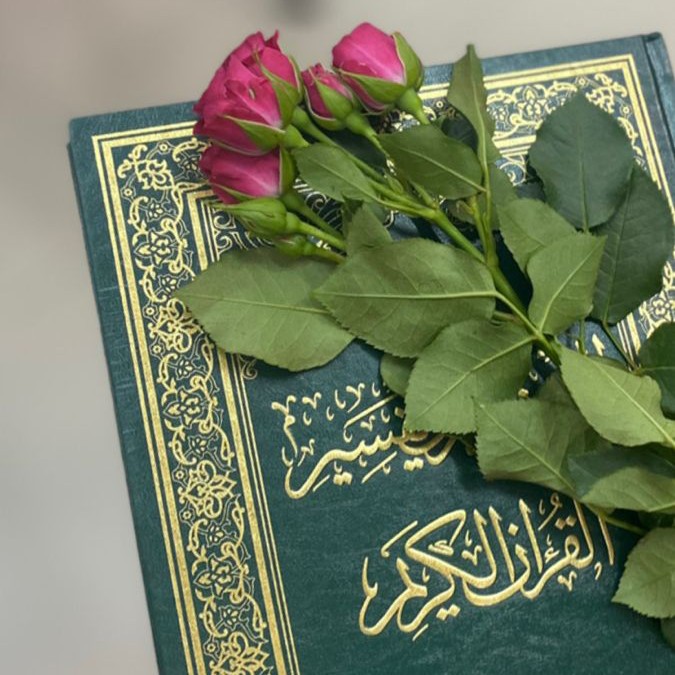 تفسير
القرآن الكريم